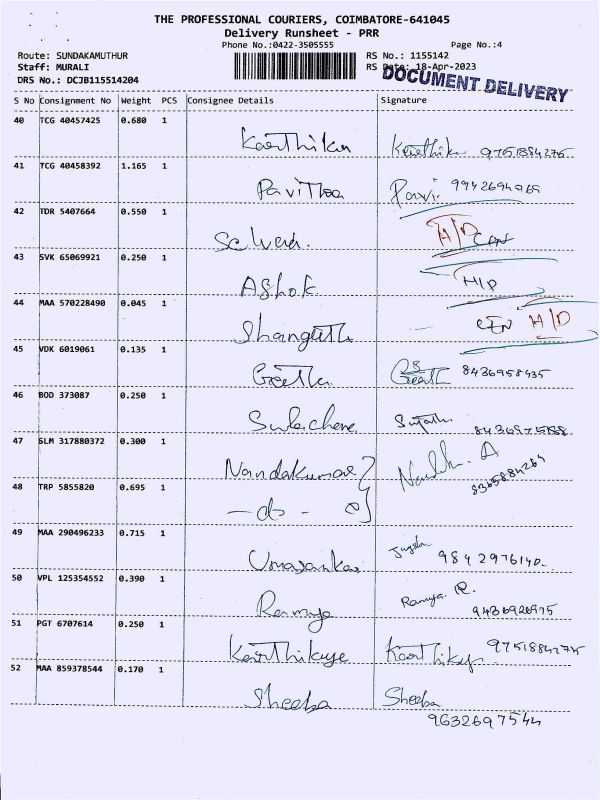 THE PROFESSIONAL COURIERS, COIMBATORE-641045
Delivery Runsheet - PRR
Phone No.:0422-3505555 Page No.:4
Route: SUNDAKAMUTHUR RS No.: 1155142
Staff: MURALI RS Date: 18-Apr-2023
DRS No.: DCJB115514204 DOCUMENT DELIVERY
S No Consignment No Weight PCS Consignee Details Signature
40 TCG 40457425 0.680 1
Karthika Karthika 9751884275
41 TCG 40458392 1.165 1
Pavithra Pavi
42 TDR 5407664 0.550 1
Selvera. H/D
43 SVK 65069921 0.250 1
Ashok H/D
44 MAA 570228490 0.045 1
H/D
45 VDK 6019061 0.135 1
Geetha Geetha 8436958435
46 BOD 373087 0.250 1
47 SLM 317880372 0.300 1
Nandakumar
48 TRP 5855820 0.695 1
-do-
49 MAA 290496233 0.715 1
Umasankar 9842976140
50 VPL 125354552 0.390 1
Ramya Ramya. R.
51 PGT 6707614 0.250 1
9751884275
52 MAA 859378544 0.170 1
Sheeba Sheeba
9632697544